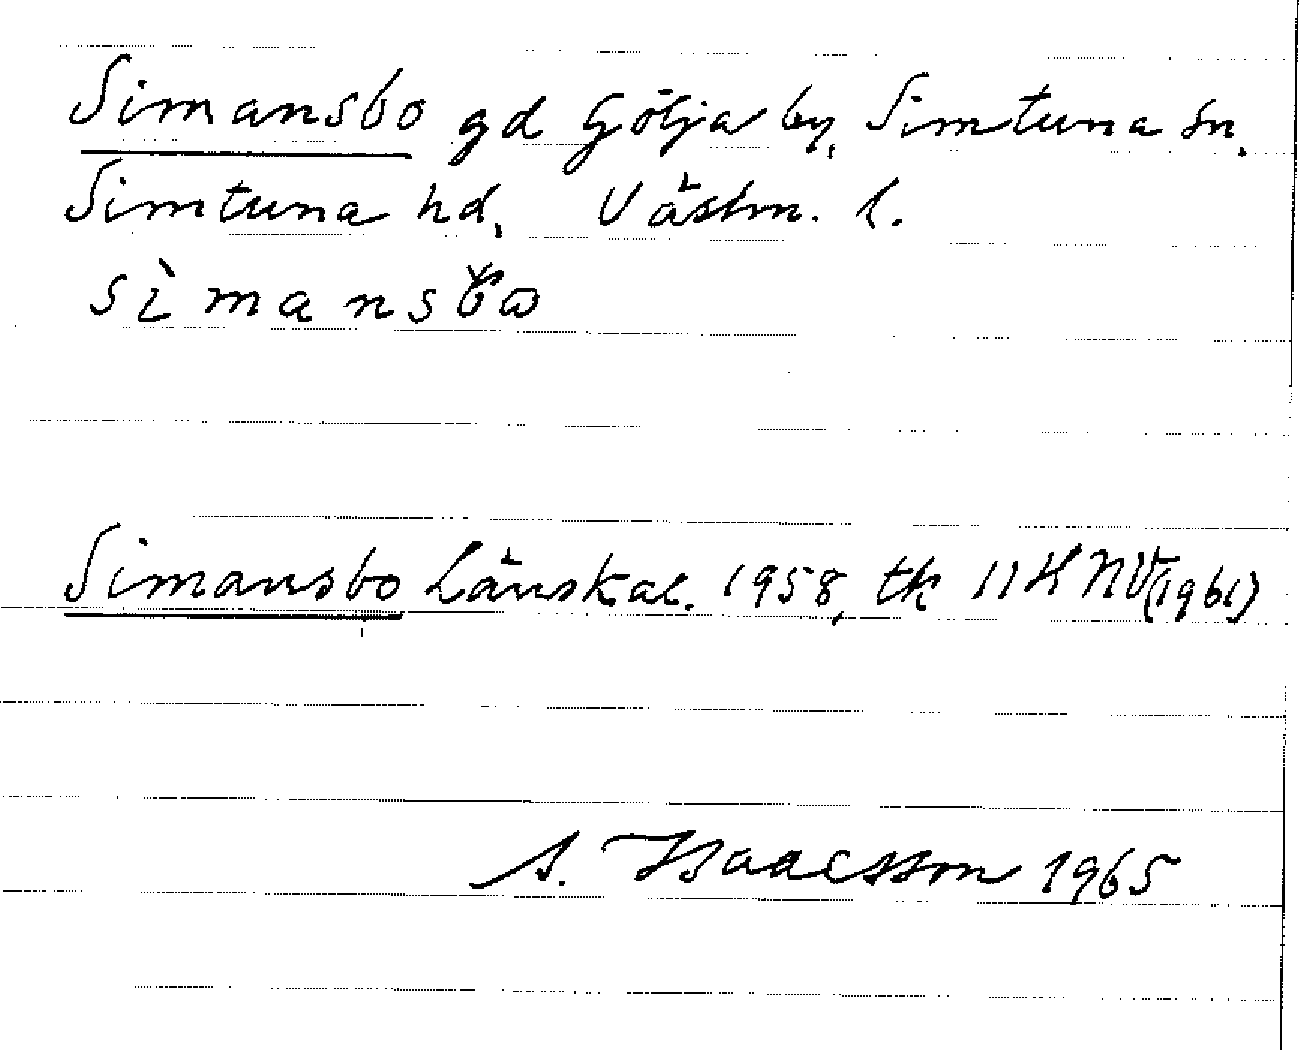 Simansbo gd Gölja by, Simtuna sn.
Simtuna hd, Västm. l.
sìmansbɷ
Simansbo Länskal. 1958, tk 11H NV(1961)
A. Isaacsson 1965